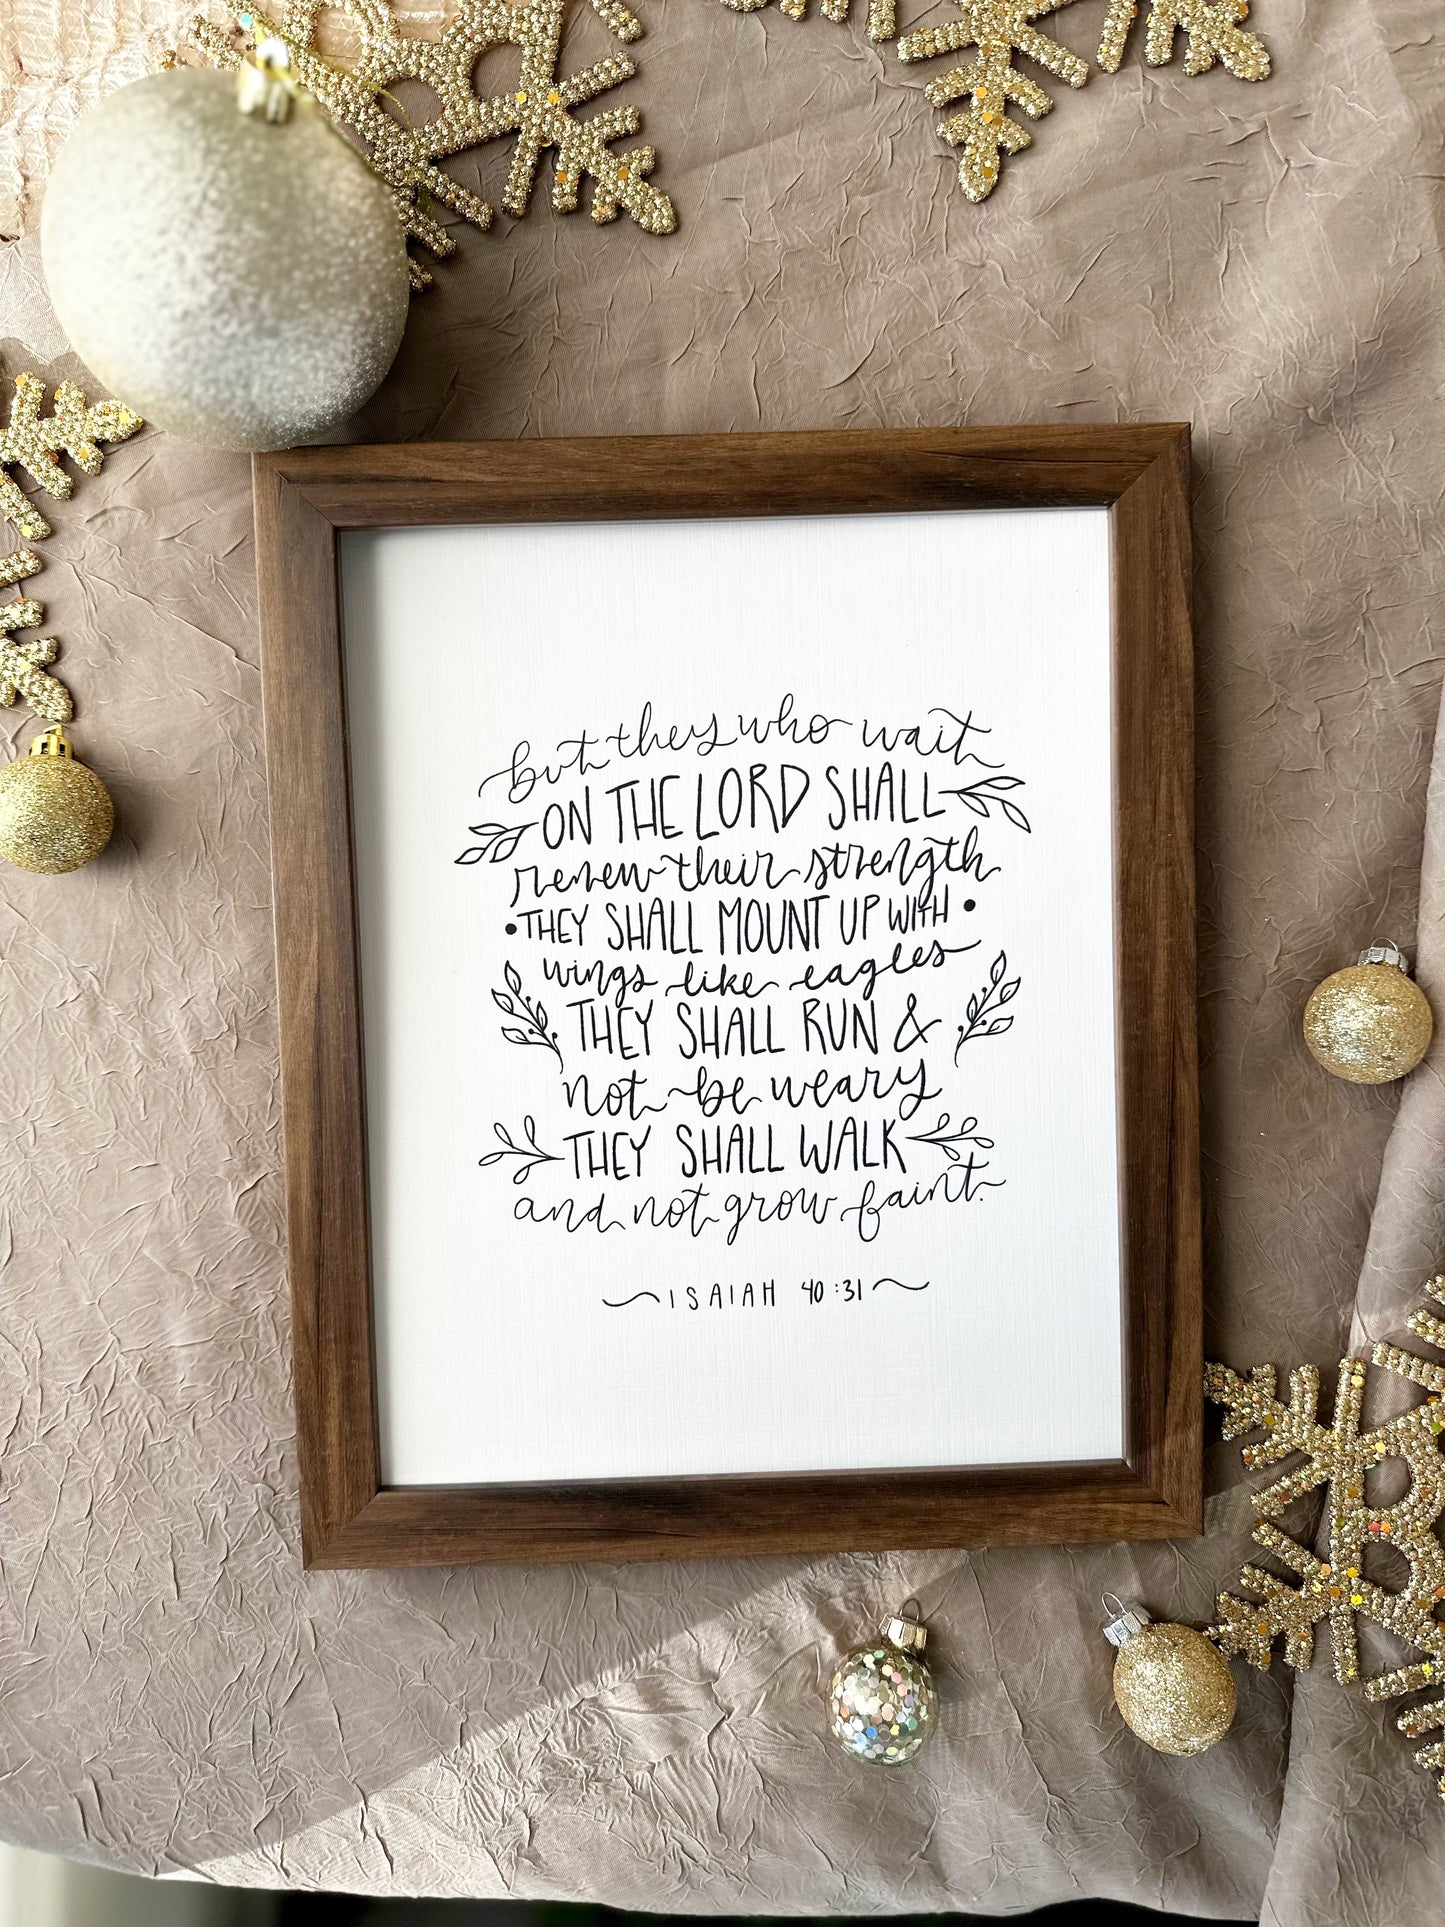 but they who wait
ON THE LORD SHALL
renew their strength
THEY SHALL MOUNT UP WITH
wings like eagles
THEY SHALL RUN &
not be weary
THEY SHALL WALK
and not grow faint.
ISAIAH 40:31